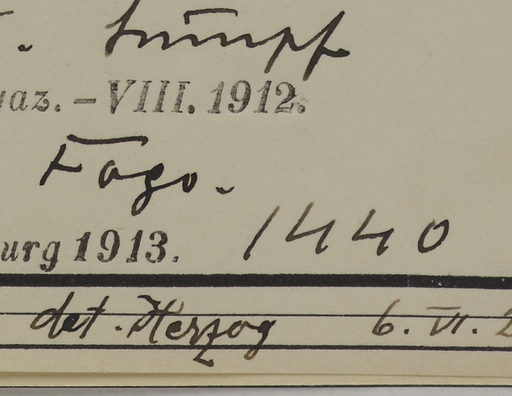 Sumpf
–VIII. 1912.
Fogo.
1913. 1440
det. Herzog 6. VI.